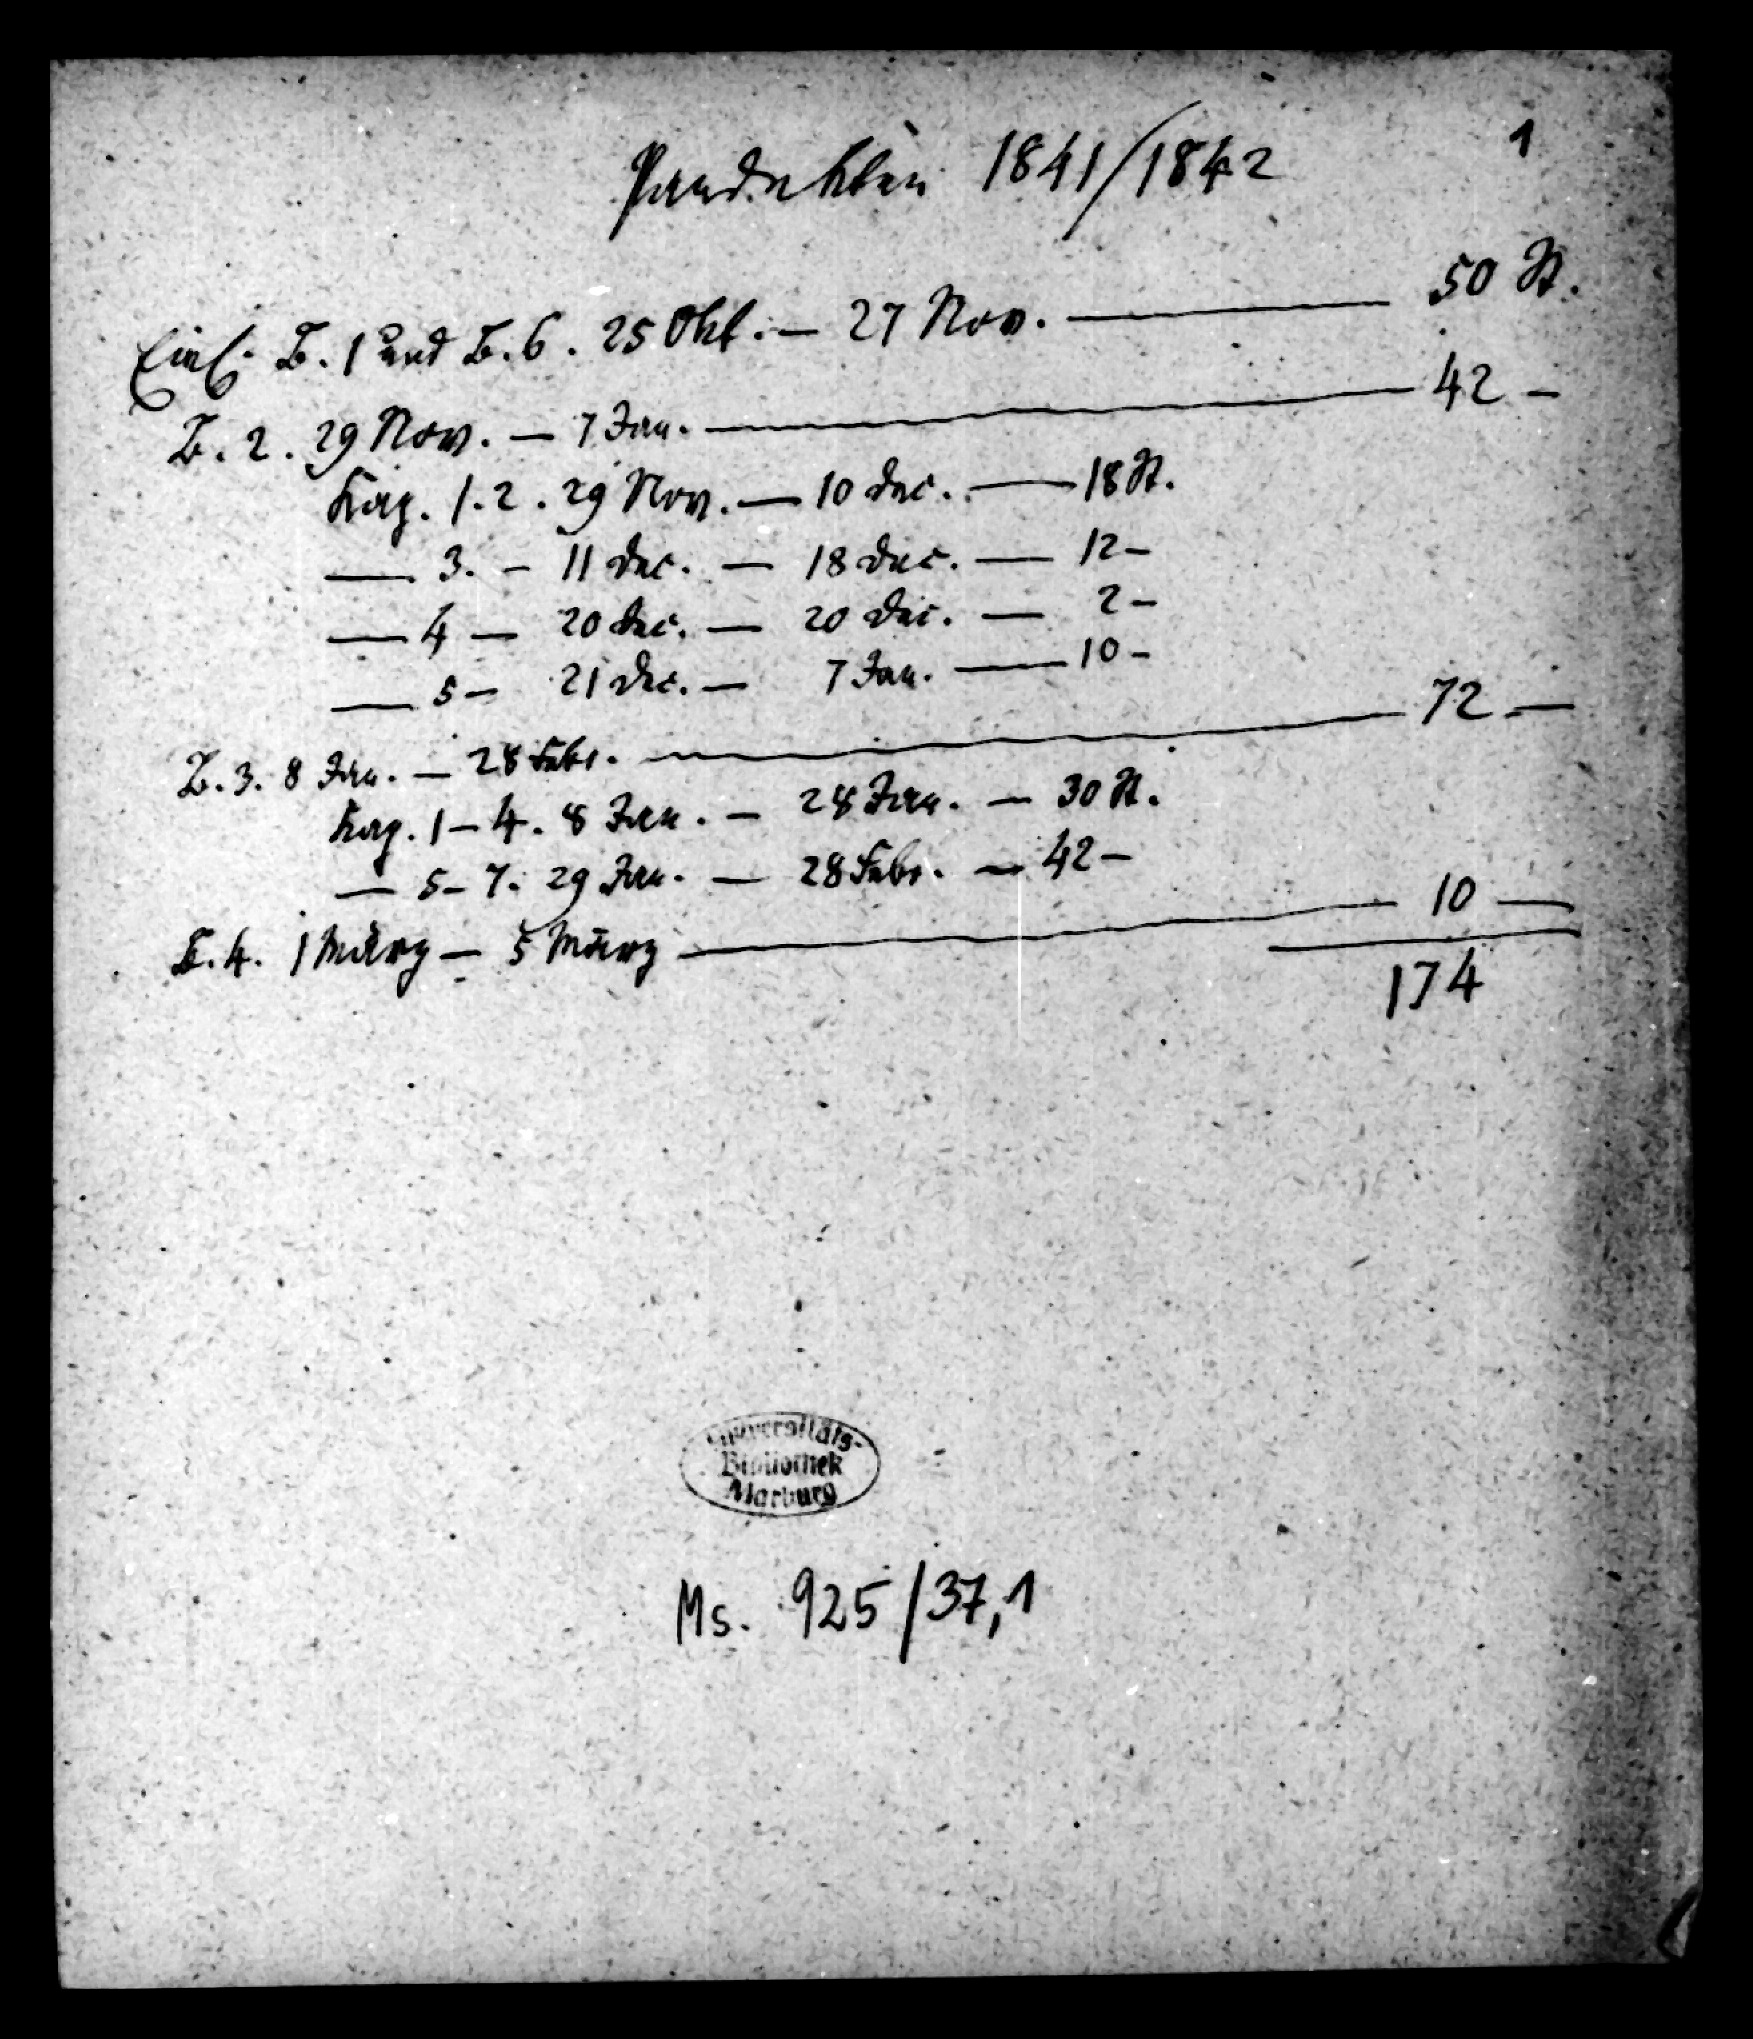 1
Pandekten 1841/1842
Einl. B. 1 und B. 6. 25 Okt. — 27 Nov. — 50 St.
B. 2. 29 Nov. — 7 Jan. — 42 —
Kap. 1. 2. 29 Nov. — 10 Dec. — 18 St.
— 3. — 11 Dec. — 18 Dec. — 12 —
— 4 — 20 Dec. — 20 Dec. — 2 —
— 5 — 21 Dec. — 7 Jan. — 10 —
B. 3. 8 Jan. — 28 Febr. — 72 —
Kap. 1 — 4. 8 Jan. — 28 Jan. — 30 St.
— 5 — 7. 29 Jan. — 28 Febr. — 42 —
B. 4. 1 März — 5 März — 10 —
174
Universitäts-
Bibliothek
Marburg
Ms. 925/37,1